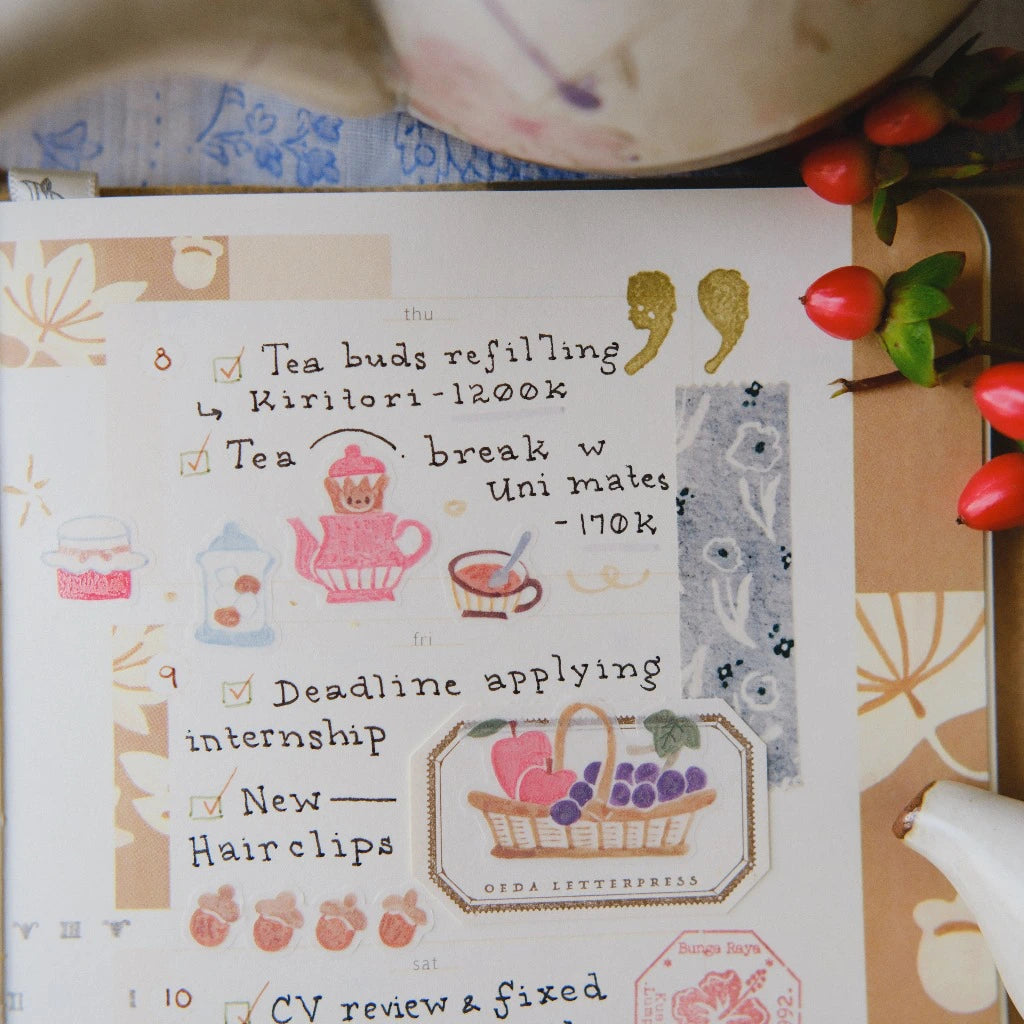 thu
8 Tea buds refilling
↳ Kiritori - 1200k
Tea break w
Uni mates
- 170k
fri
9 Deadline applying
internship
New —
Hair clips
OEDA LETTERPRESS
sat
Bunga Raya
10 CV review & fixed
992.